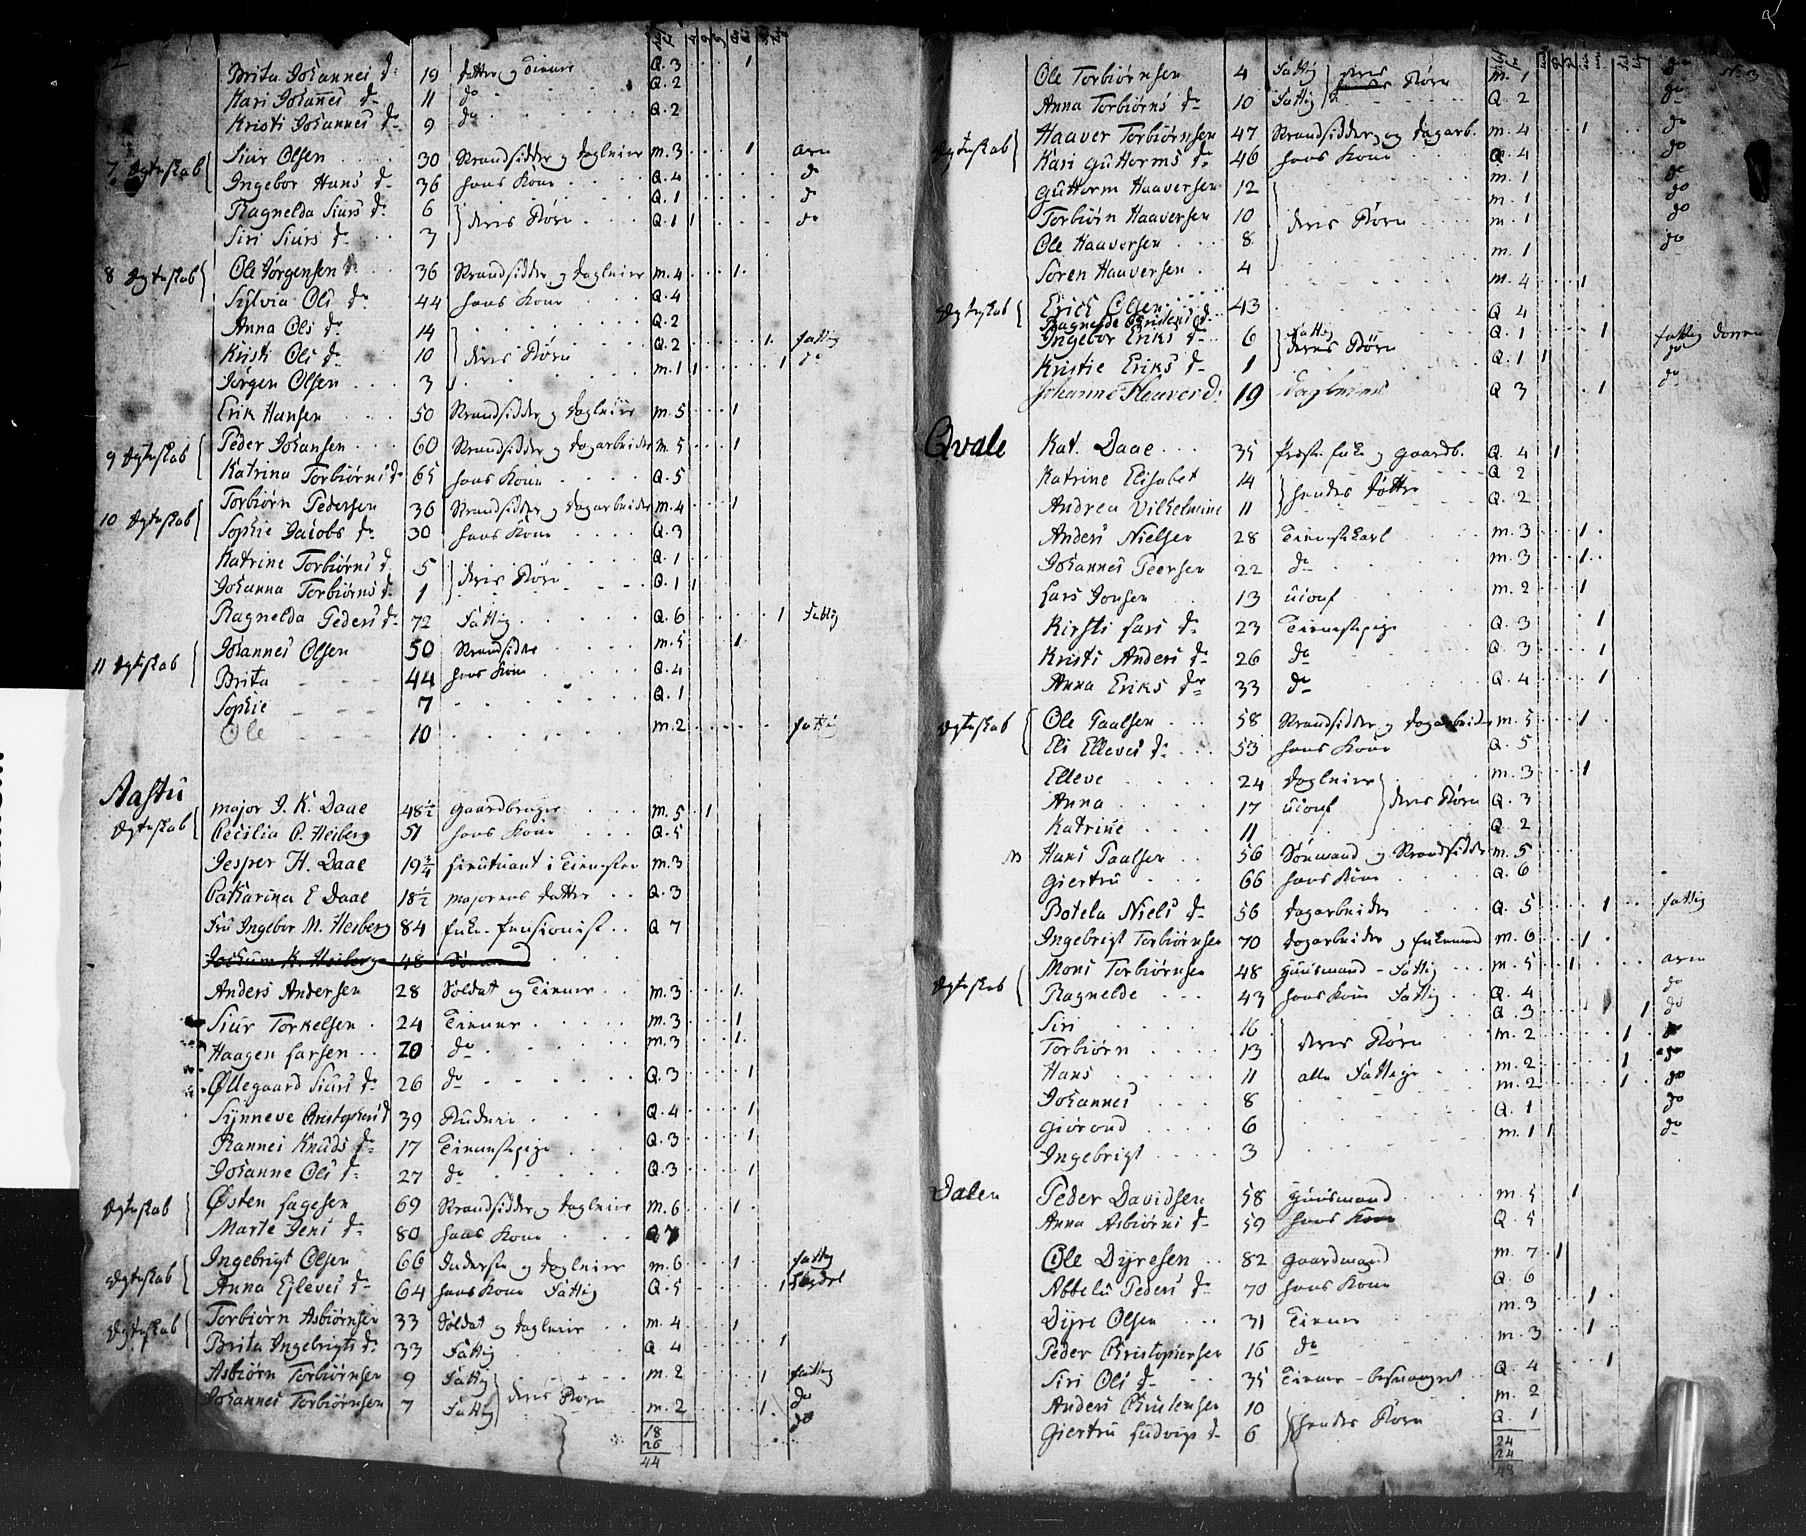 Brita Johannes d. 19 datter og tiener Q. 3 1
Kari Johannes d. 11 do Q. 2
Kristi Johannes d. 9 do Q. 2
7 Egteskab Siur Olsen 30 Strandsidder og daglejer m. 3 1
Ingebor Hans d. 36 hans Kone Q. 4 d
Ragnelda Siurs d. 6 Q. 1 d
deres Børn
Siri Siurs d. 3 Q. 1 1 do
8 Egteskab Ole Jørgensen 36 Strandsidder og daglejer m. 4 1
Sylvia Ols d. 44 hans Kone Q. 4
Anna Ols d. 14 Q. 2
Kristi Ols d. 10 deres Børn Q. 2 1. fattig
Jørgen Olsen 3 m. 1 1 1 do
Erik Hansen 50 Strandsidder og daglejer m. 5 1
9 Egteskab Peder Johansen 60 Strandsidder og dagarbeider m. 5 1
Katrina Torbiørns d. 65 hans Kone Q. 5
10 Egteskab Torbiørn Pedersen 36 Strandsidder og dagarbeider m. 4 1
Sophie Jacobs d. 30 hans Kone Q. 3
Katrine Torbiørns d. 5 Q. 1
deres Børn
Johanna Torbiørns d. 1 Q. 1 1
Ragnelda Peders d. 72 Fattig Q. 6 1 Fattig
11 Egteskab Johannes Olsen 50 Strandsidder m. 5 1
Brita 44 hans Kone Q. 4
Sophie 7 Q. 1
Ole 10 m. 2 fattig
Aastu
Egteskab Major J. K. Daae 48½ gaardbruger m. 5 1
Cecilia C. Heiberg 51 hans Kone Q. 5
Jesper H. Daae 19¾ Lieutnant i Tienesten m. 3
Catharina E Daae 18½ majorens datter Q. 3
Fru Ingebor M. Heiberg 84 Enke-Pensionist Q 7
Anders Andersen 28 Soldat og Tiener m. 3 1.
Siur Torkelsen 24 Tiener m. 3 1
Haagen Larsen 20 do m. 3 1.
Øllegaard Siurs d. 26 do Q. 3 1
Synneve Christophers d 39 Q. 4 1
Rannei Knuds d. 17 Tienestepige Q. 3 1
Johanne Ols d. 27 do Q. 3 1
Egteskab Østen Lagesen 69 Strandsidder og daglejer m. 6 1
Marte Jens d. 80 hans Kone Q 7
Egteskab Ingebrigt Olsen 66 Inderste og daglejer m. 6 1 fattig
Anna Ejleves d. 64 hans Kone Fattig Q. 5 1
Egteskab Torbiørn Asbiørnsen 33 Soldat og daglejer m. 4 1
Brita Ingebrigts d. 33 Fattig Q. 4 1
Asbiørn Torbiørnsen 9 Fattig m. 2 1 fattig
deres Børn do
Johannes Torbiørnsen 7 Fattig m. 2 1. do
18
26
44
Ole Torbiørnsen 4 Fattig m. 1 do
deres Børn
Anna Torbiørns d. 10 Fattig Q. 2 do
Egteskab Haaver Torbiørnsen 47 Strandsidder og dagarb. m. 4 1 do
Kari Guttorms d. 46 hans Kone Q. 4 do
Guttorm Haaversen 12 m. 1 do
Torbiørn Haaversen 10 deres Børn m. 1 do
Ole Haaversen 8 m. 1 do
Søren Haaversen 4 m. 1 do
Egteskab Erich Olsen 43 m. 4 1
Ragnelde d. Q 4
Ingebor Eriks d. 6 Fattig Q. 1 1 fattig
deres Børn
Kristie Eriks d. 1 Q. 1 1 do
Johanne Haavers d. 19 Q 3 1 do
Qvale Kat. Daae 35 Præste Enke og gaardb. Q. 4 1
Katrine Elisabet 14 Q 2
hendes døttre
Andrea Vilhelmine 11 Q. 2
Anders Nielsen 28 Tienestekarl m. 3 1
Johannes Peersen 22 do m. 3 1
Lars Jonsen 13 m. 2 1
Kirsti Lars d. 23 Tienestepige Q. 3 1
Kristi Anders d. 26 do Q. 3 1
Anna Eriks d. 33 do Q. 4 1
Egteskab Ole Paalsen 58 Strandsidder og dagarbeider m. 5 1
Eli Elleves d. 53 hans Kone Q. 5
Elleve 24 daglejer m. 3 1
Anna 17 deres Børn Q. 3
Katrine 11 Q. 2
Hans Paalsen 56 og Strandsidder m. 5
Giertru 66 hans Kone Q. 6
Botela Niels d. 56 dagarbeider Q. 5 1 fattig
Ingebrigt Torbiørnsen 70 dagarbeider og Enkemand m. 6 1
Egteskab Mons Torbiørnsen 48 Huusmand-Fattig m. 5 1
Ragnelde 43 hans Kone Fattig Q. 4 do
Siri 16 Q. 3 1 do
Torbiørn 13 deres Børn m. 2 1 do
Hans 11 alle Fattige m. 2 1 do
Johannes 8 m. 2 1 do
Giørond 6 Q. 1 do
Ingebrigt 3 m. 1 1 do
Dalen Peder Davidsen 58 Huusmand m. 5 1
Anna Asbiørns d. 59 hans Kone Q. 5
Ole Dyresen 82 gaardmand m. 7 1
Abbelu Peders d. 70 hans Kone Q. 6
Dyre Olsen 31 Tiener m. 3 1
Peder Christophersen 16 do m. 3 1
Siri Ols d. 35 Tiener-besvangret Q. 4 1
Anders Christensen 10 m. 2
hendes Børn
Giertru Ludvigs d. 6 Q. 1
24
24
48